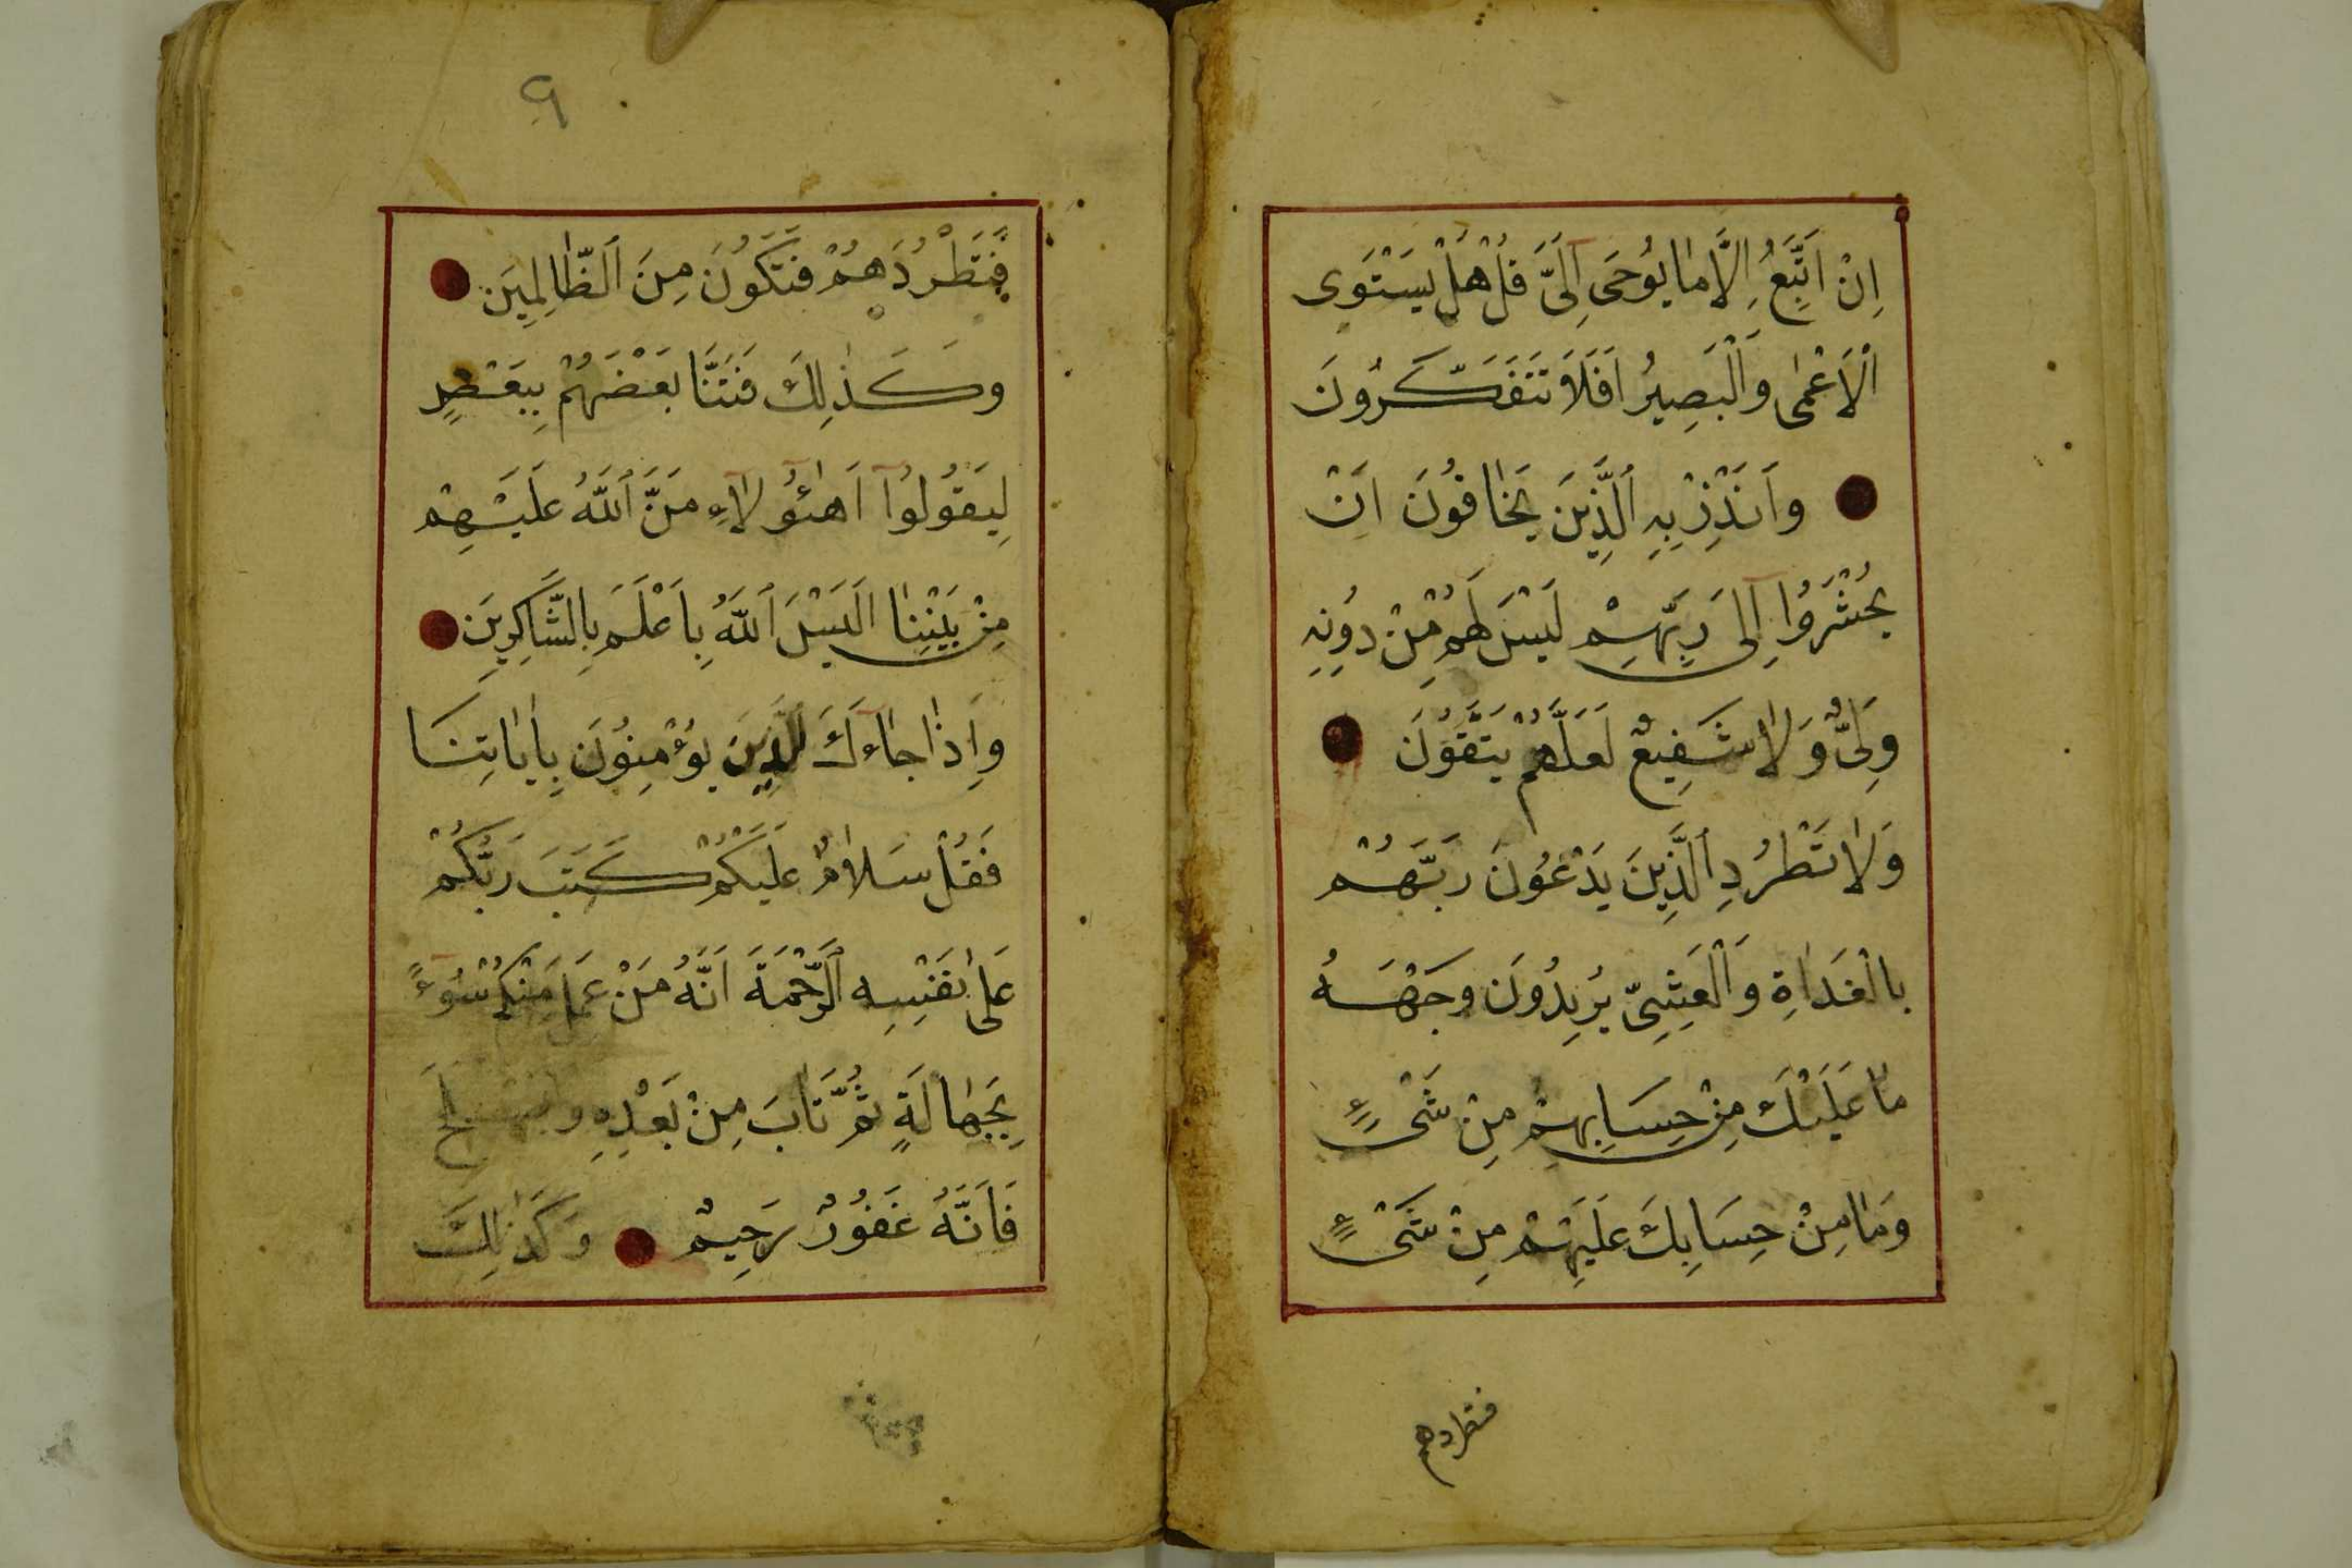 اِنْ اَتَّبِعُ اِلَّا مٰا يُوحَى اِلَىَّ قُلْ هَلْ يَسْتَوِى
الْاَعْمٰى وَالْبَصِيرُ اَفَلَا تَتَفَكَّرُونَ
وَاَنْذِرْ بِهِ الَّذِينَ يَخٰافُونَ اَنْ
يُحْشَرُوا اِلىٰ رَبِّهِمْ لَيْسَ لَهُمْ مِنْ دُونِهِ
وَلِىٌّ وَلٰا شَفِيعٌ لَعَلَّهُمْ يَتَّقُونَ
وَلٰا تَطْرُدِ الَّذِينَ يَدْعُونَ رَبَّهُمْ
بِالْغَدٰاةِ وَالْعَشِىِّ يُرِيدُونَ وَجْهَهُ
مٰا عَلَيْكَ مِنْ حِسَابِهِمْ مِنْ شَىْءٍ
وَمٰا مِنْ حِسَابِكَ عَلَيْهِمْ مِنْ شَىْءٍ
فتطردهم
٩
فَتَطْرُدَهُمْ فَتَكُونَ مِنَ الظّٰالِمِينَ
وَكَذٰلِكَ فَتَنَّا بَعْضَهُمْ بِبَعْضٍ
لِيَقُولُوا اَهٰؤُلٰاءِ مَنَّ اللّٰهُ عَلَيْهِمْ
مِنْ بَيْنِنٰا اَلَيْسَ اللّٰهُ بِاَعْلَمَ بِالشَّاكِرِينَ
وَاِذٰا جٰاءَكَ الَّذِينَ يُؤْمِنُونَ بِاٰيٰاتِنَا
فَقُلْ سَلٰامٌ عَلَيْكُمْ كَتَبَ رَبُّكُمْ
عَلىٰ نَفْسِهِ الرَّحْمَةَ اَنَّهُ مَنْ عَمِلَ مِنْكُمْ سُوءً
بِجَهٰالَةٍ ثُمَّ تَابَ مِنْ بَعْدِهِ وَاَصْلَحَ
فَاَنَّهُ غَفُورٌ رَحِيمٌ وَكَذٰلِكَ